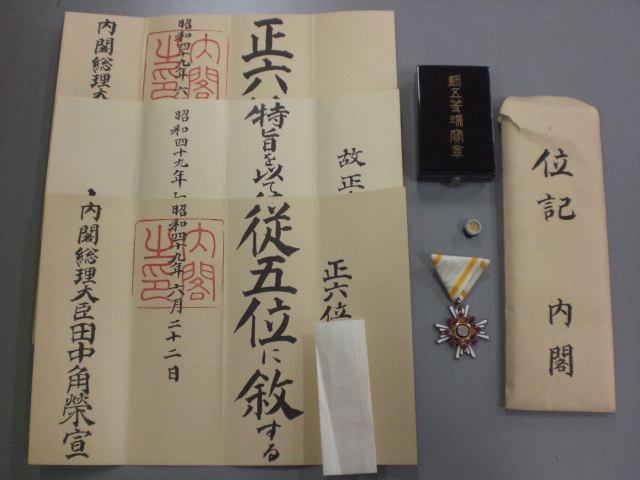 正六
昭和四十九年六
内閣総理大
内閣
之印
故正
特旨を以て
昭和四十九年
正六位
従五位に敘する
昭和四十九年六月二十二日
内閣総理大臣田中角榮宣
内閣
之印
勲五等瑞宝章
位記
内閣